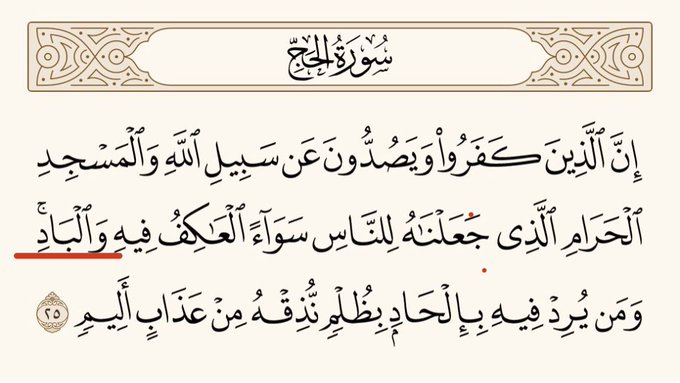 سُورَةُ الحَجِّ
إِنَّ ٱلَّذِينَ كَفَرُوا۟ وَيَصُدُّونَ عَن سَبِيلِ ٱللَّهِ وَٱلْمَسْجِدِ
ٱلْحَرَامِ ٱلَّذِى جَعَلْنَـٰهُ لِلنَّاسِ سَوَآءً ٱلْعَـٰكِفُ فِيهِ وَٱلْبَادِ ۚ
وَمَن يُرِدْ فِيهِ بِإِلْحَادٍۭ بِظُلْمٍ نُّذِقْهُ مِنْ عَذَابٍ أَلِيمٍ ٢٥